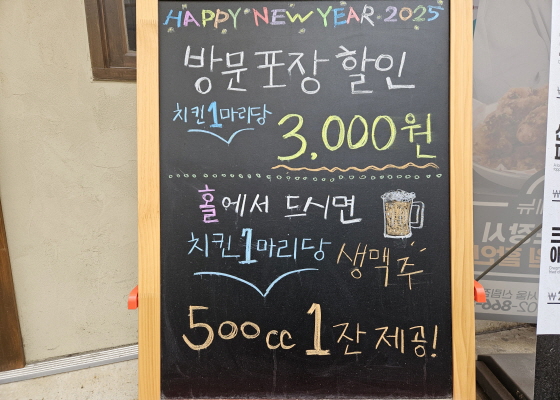 HAPPY NEW YEAR 2025
방문포장 할인
치킨1마리당
3,000원
홀에서 드시면
치킨1마리당
생맥주
500cc 1잔 제공!